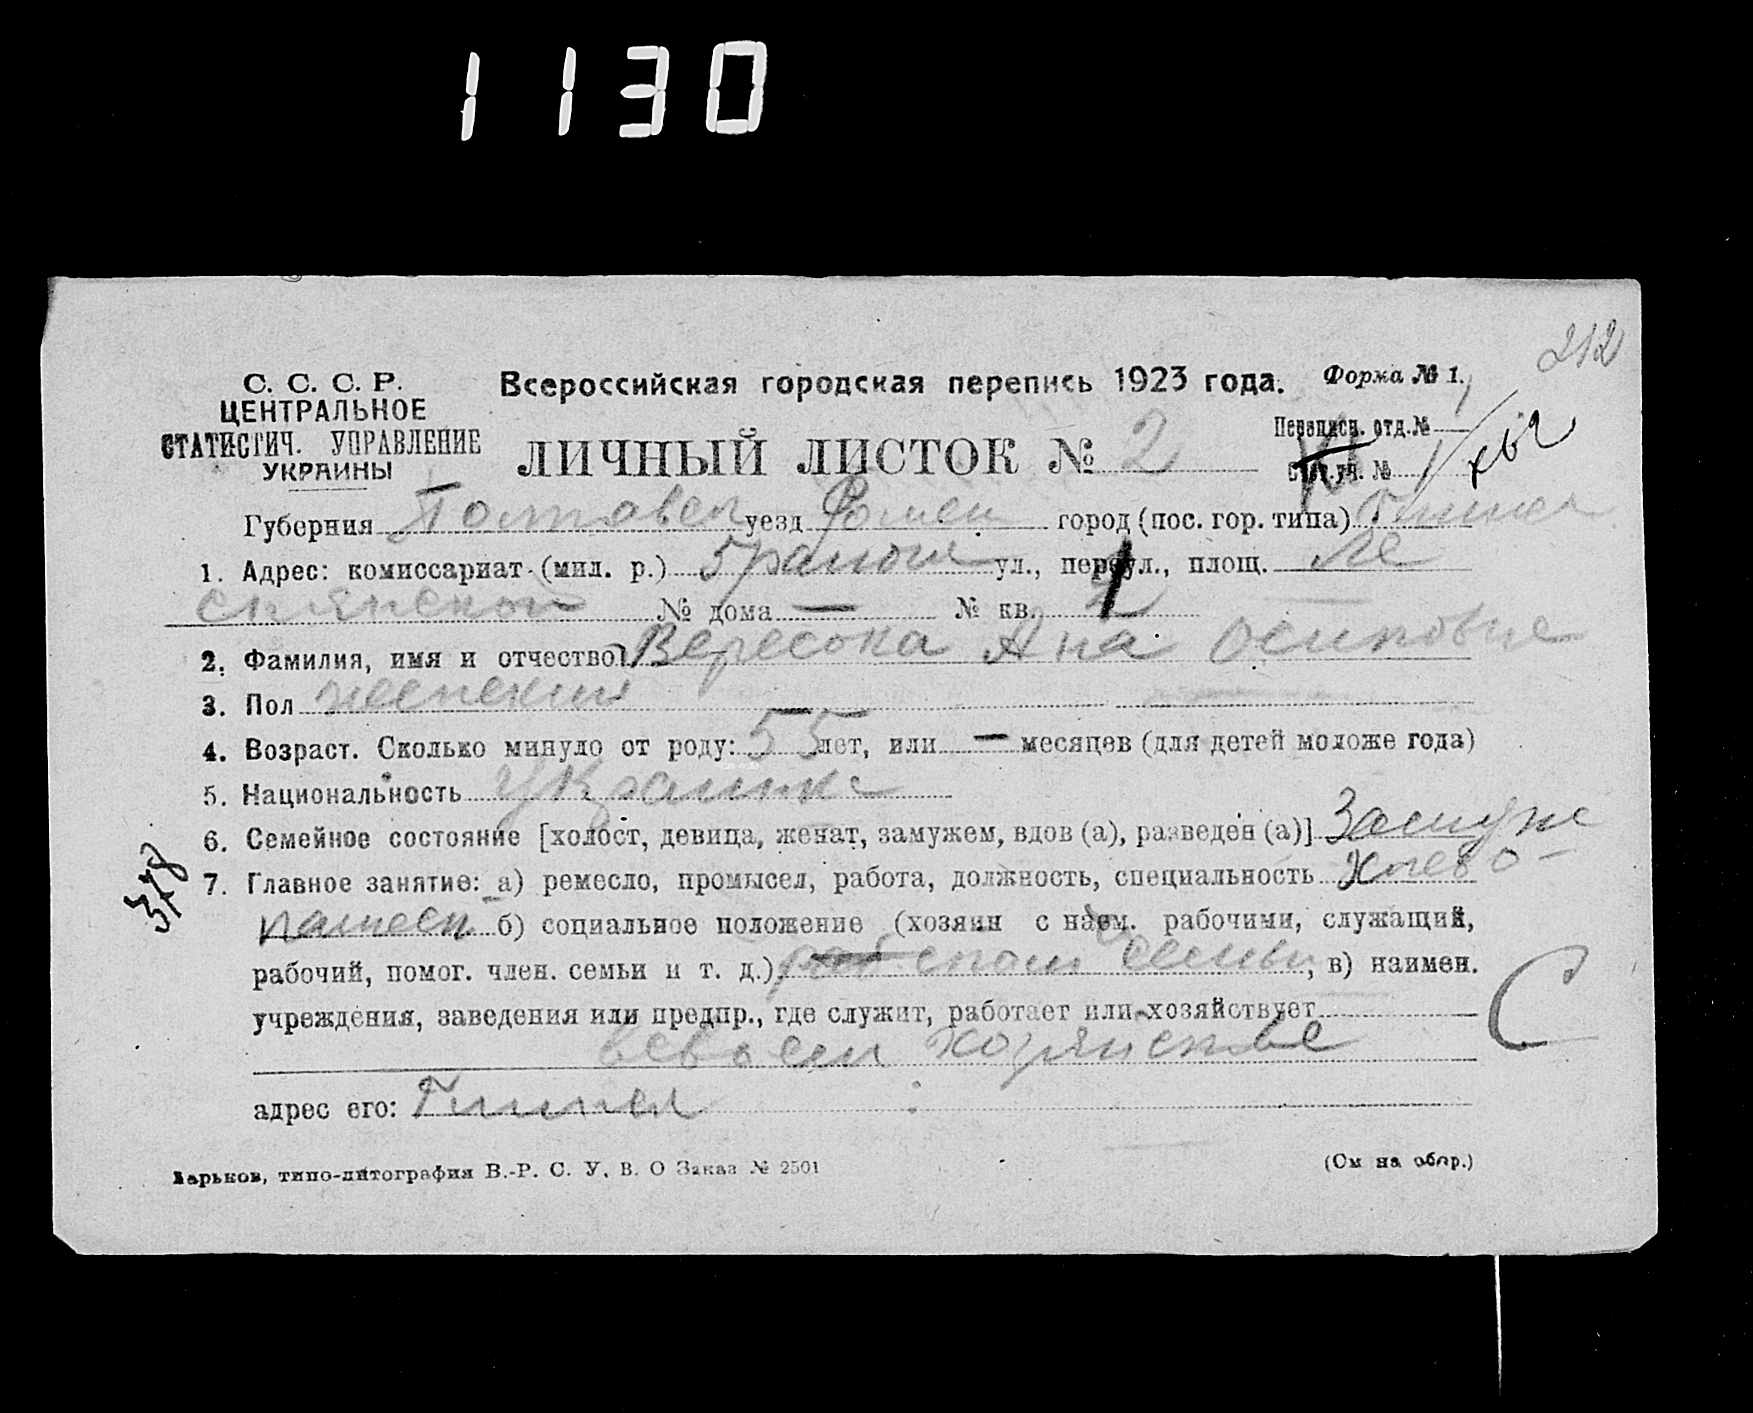 1130
212
С. С. С. Р.
ЦЕНТРАЛЬНОЕ
СТАТИСТИЧ. УПРАВЛЕНИЕ
УКРАИНЫ
Всероссийская городская перепись 1923 года.
Форма № 1.
ЛИЧНЫЙ ЛИСТОК № 2
Переписн. отд. №
Счет. уч. №
Губерния Полтавск уезд Ромен город (пос. гор. типа)
1. Адрес: комиссариат (мил. р.) ул., переул., площ.
№ дома — № кв.
2. Фамилия, имя и отчество Вересока Ана Осиповне
3. Пол женский
4. Возраст. Сколько минуло от роду: 55 лет, или — месяцев (для детей моложе года)
5. Национальность Украинка
6. Семейное состояние [холост, девица, женат, замужем, вдов (а), разведен (а)] Замуж
7. Главное занятие: а) ремесло, промысел, работа, должность, специальность хлебо-
пашест б) социальное положение (хозяин с наем. рабочими, служащий,
рабочий, помог. член. семьи и т. д.) семьи, в) наимен.
учреждения, заведения или предпр., где служит, работает или хозяйствует
всвоем хозяйстве
адрес его:
378
Харьков, типо-литография В.-Р. С. У. В. О Заказ № 2501
(См на обор.)